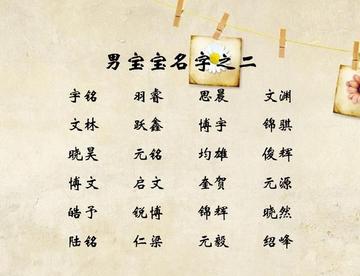 男宝宝名字之二
宇铭 羽睿 思晨 文渊
文林 跃鑫 博宇 锦骐
晓昊 元铭 均雄 俊辉
博文 启文 奎贺 元源
皓予 锐博 锦辉 晓然
陆铭 仁梁 元毅 绍峰